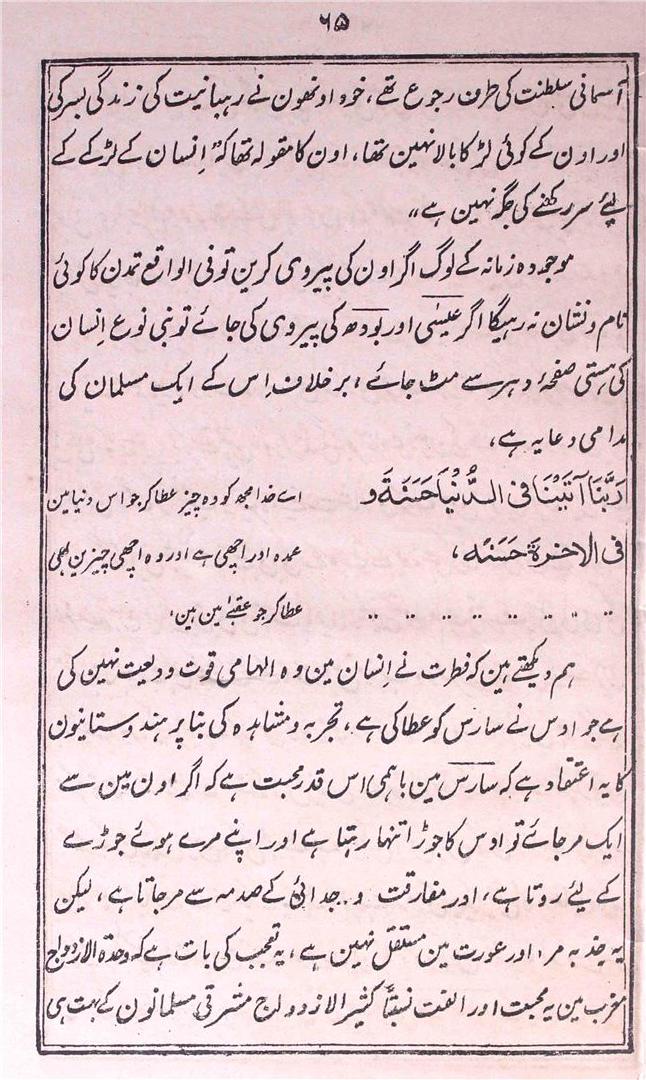 ۶۵
آسمانی سلطنت کی طرف رجوع تھے، خود اونھون نے رہبانیت کی زندگی بسر کی
اور اون کے کوئی لڑکا بالا نہین تھا، اون کا مقولہ تھا کہ "انسان کے لڑکے کے
لیئے سر رکھنے کی جگہ نہین ہے"
موجودہ زمانہ کے لوگ اگر اون کی پیروی کرین تو فی الواقع تمدن کا کوئی
نام و نشان نہ رہیگا اگر عیسیٰ اور بودھ کی پیروی کی جائے تو بنی نوع اِنسان
کی ہستی صفحۂ دہر سے مٹ جائے، برخلاف اِس کے ایک مسلمان کی
مدامی دعا یہ ہے،
رَبَّنَا آتِیْنَا فی الدُّنْیَا حَسَنَةً و
اے خدا مجھ کو وہ چیز عطا کر جو اس دنیا مین
فی الاخرة حَسَنَه،
عمدہ اور اچھی ہے اور وہ اچھی چیزین بھی
عطا کر جو عقبےٰ مین ہین،
ہم دیکھتے ہین کہ فطرت نے اِنسان مین وہ الہامی قوت ودیعت نہین کی
ہے جو اوس نے سارس کو عطا کی ہے، تجربہ و مشاہدہ کی بنا پر ہندوستانیون
کا یہ اعتقاد ہے کہ سارس مین باہمی اس قدر محبت ہے کہ اگر اون مین سے
ایک مر جائے تو اوس کا جوڑا تنہا رہتا ہے اور اپنے مرے ہوئے جوڑے
کے لیئے روتا ہے، اور مفارقت و جدائی کے صدمہ سے مر جاتا ہے، لیکن
یہ جذبہ مرد اور عورت مین مستقل نہین ہے، یہ تعجب کی بات ہے کہ وحدة الازدواج
مغرب مین یہ محبت اور الفت نسبتاً کثیر الازدواج مشرقی مسلمانون کے بہت ہی